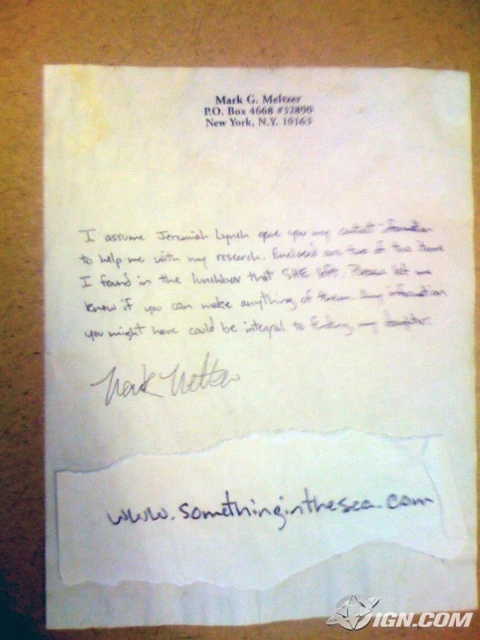 Mark G. Meltzer
P.O. Box 4668 #32890
New York, N.Y. 10163
I assume Jeremiah Lynch gave you my contact information
to help me with my research. Enclosed are two of the items
I found in the lunchbox that SHE left. Please let me
know if you can make anything of them. Any information
you might have could be integral to finding my daughter.
Mark Meltzer
www.somethinginthesea.com
IGN.COM